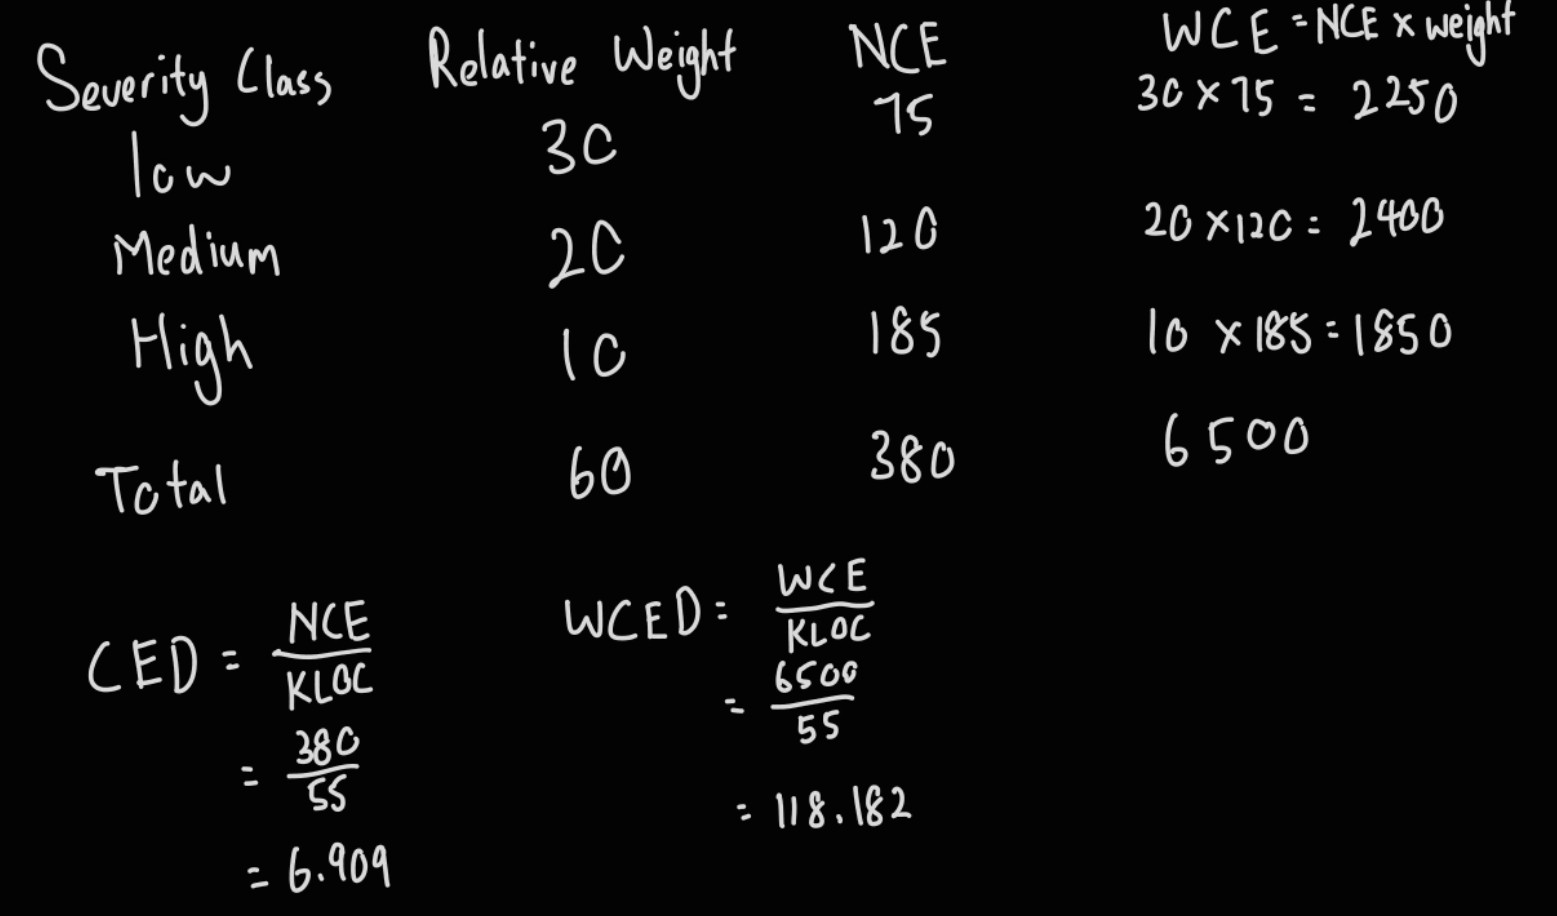 Severity Class Relative Weight NCE WCE = NCE x weight
low 30 75 30 x 75 = 2250
Medium 20 120 20 x 120 = 2400
High 10 185 10 x 185 = 1850
Total 60 380 6500
CED = NCE / KLOC
= 380 / 55
= 6.909
WCED = WCE / KLOC
= 6500 / 55
= 118.182